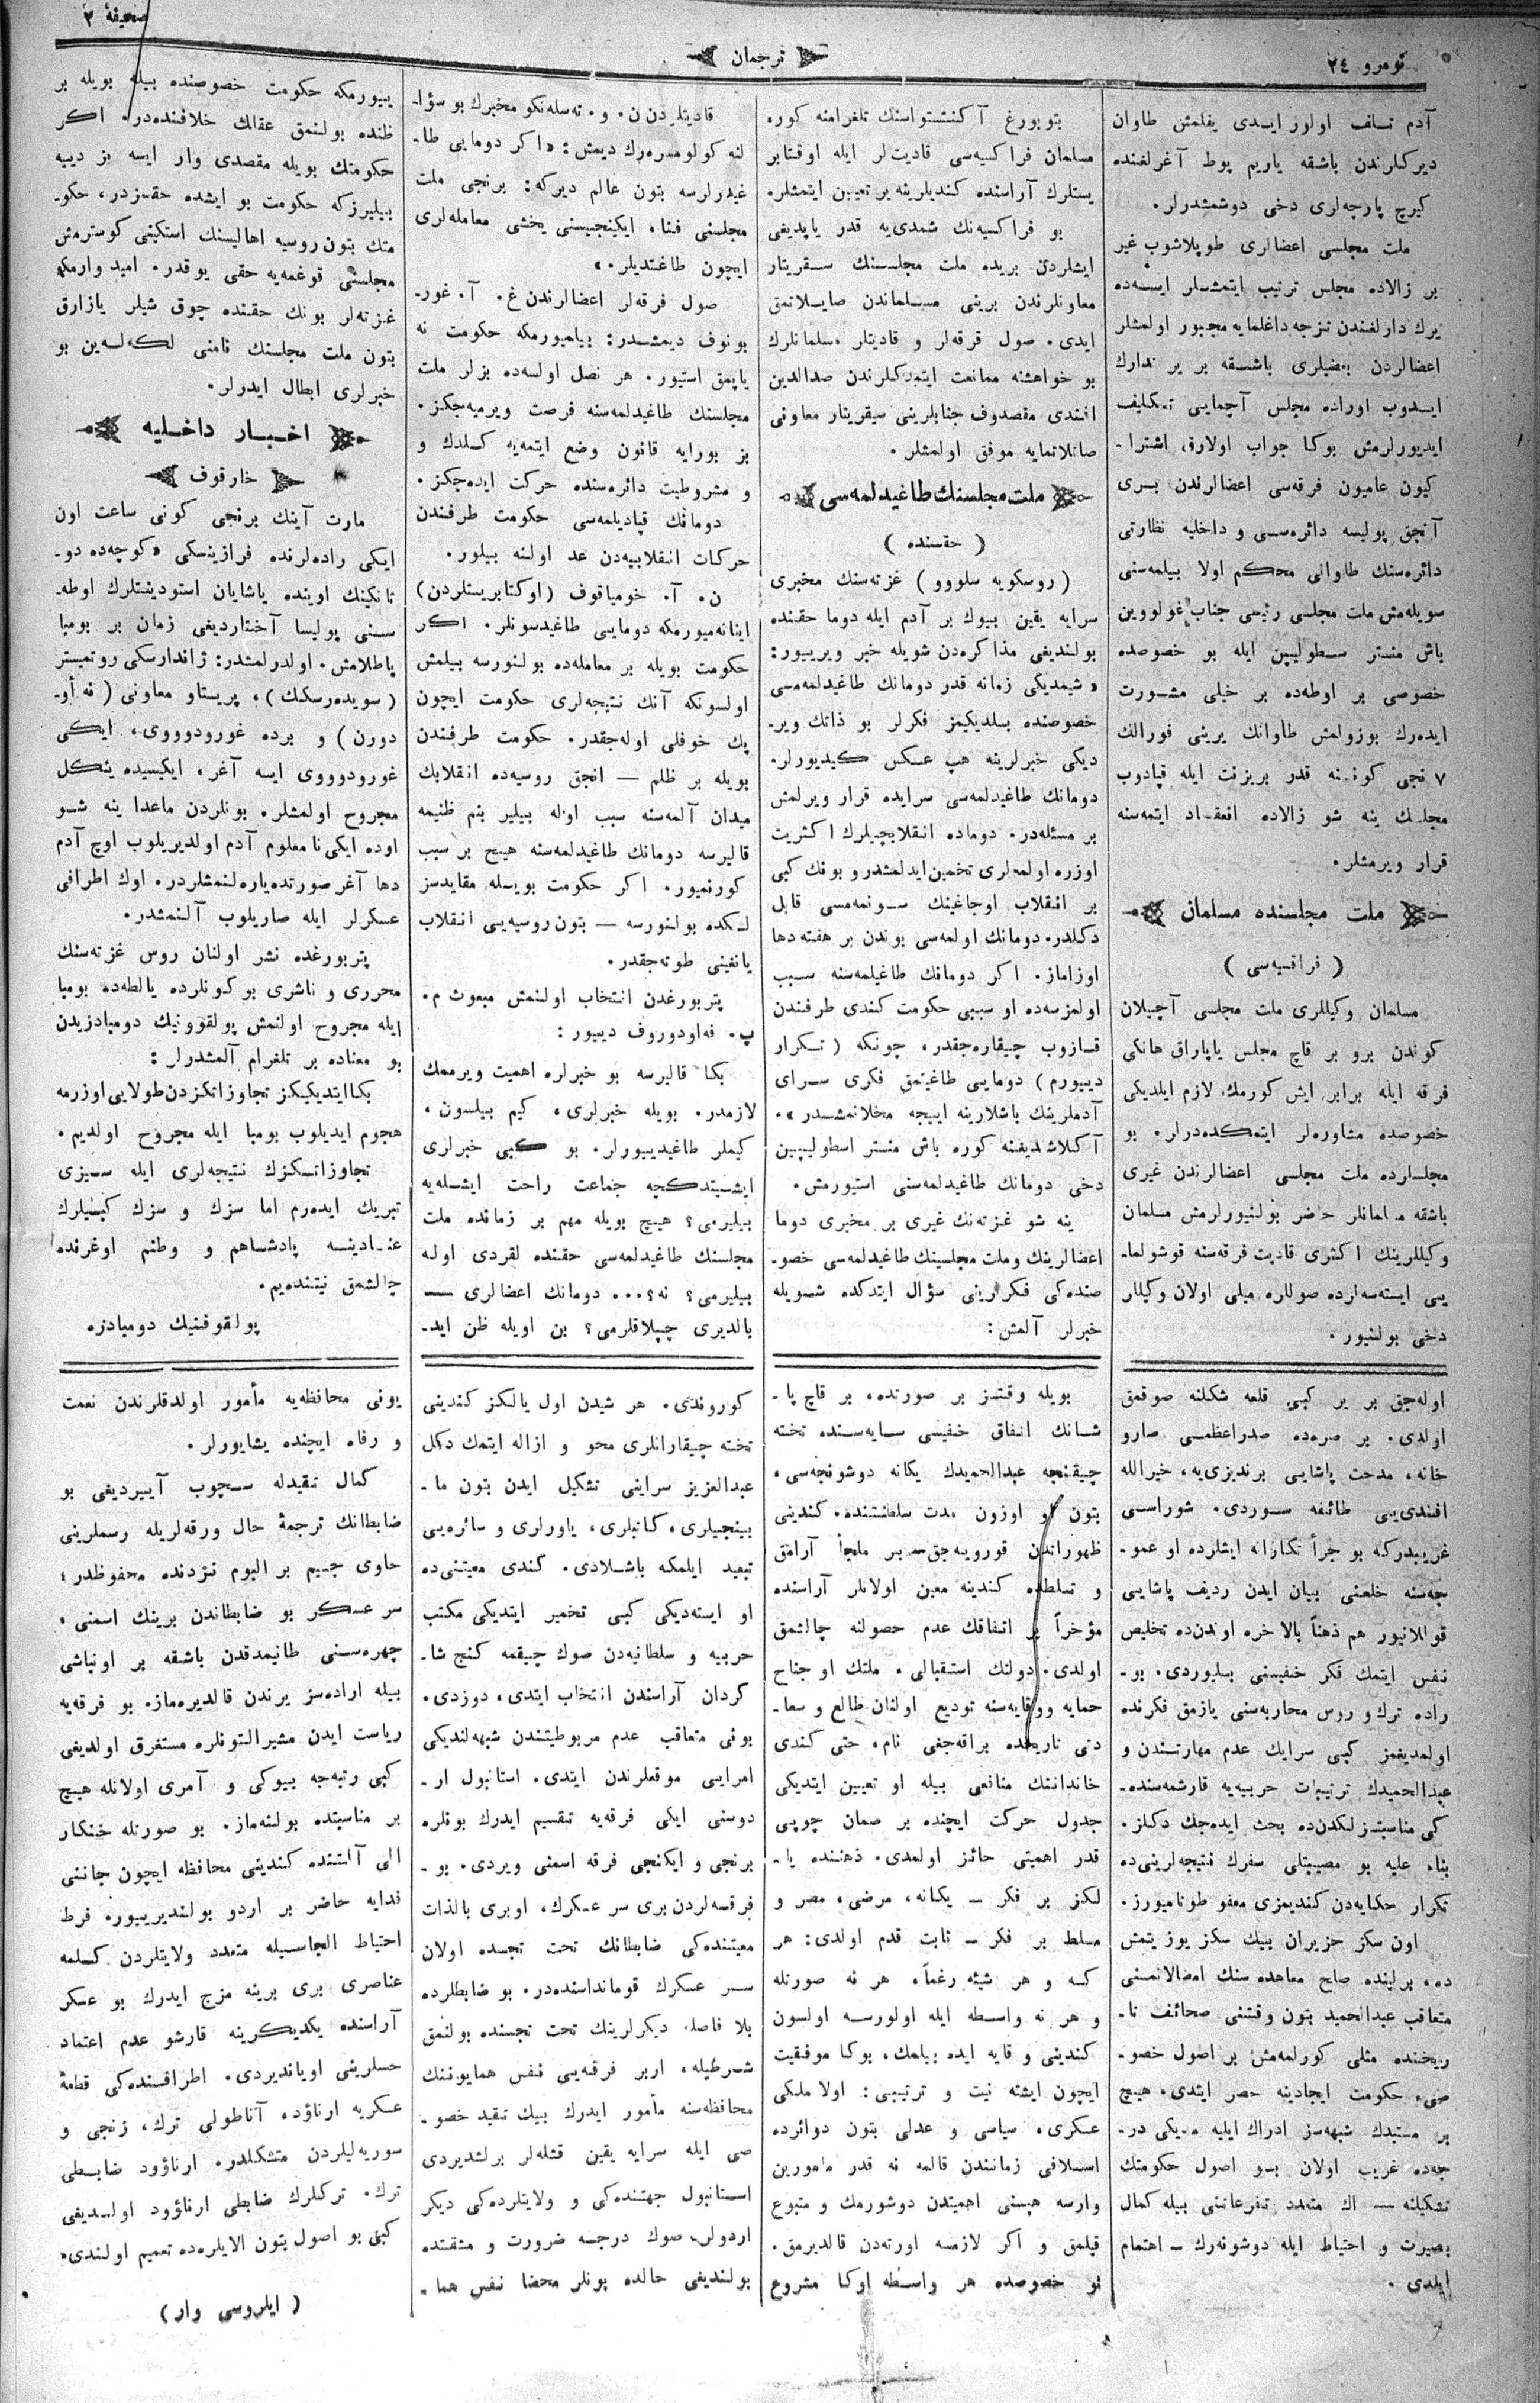 نومرو ٢٤
ترجمان
صحيفۀ ٣
آدم تلف اولور ايدى يقلمش طاوان
ديركلرندن باشقه ياريم پوط آغرلغنده
كيرچ پارچه‌لرى دخى دوشمشدرلر.
ملت مجلسى اعضالرى طوپلاشوب غير
بر زالاده مجلس ترتيب ايتمشلر ايسه‌ده
يرك دارلغندن تيزجه داغلمايه مجبور اولمشلر
اعضالردن بعضيلرى باشقه بر ير ندارك
ايدوب اوراده مجلس آچمايى تكليف
ايديورلرمش بوكا جواب اولارق اشترا-
كيون عاميون فرقه‌سى اعضالرندن برى
آنجق پوليسه دائره‌سى و داخليه نظارتى
دائره‌سنك طاوانى محكم اولا بيلمه‌سنى
سويله‌مش ملت مجلسى رئيسى جناب غولووين
باش منستر سطوليپن ايله بو خصوصده
خصوصى بر اوطه‌ده بر خيلى مشورت
ايده‌رك بوزولمش طاوانك يرينى فورالك
٧ نجى كوننه قدر بريزنت ايله قپادوب
مجلسك ينه شو زالاده انعقاد ايتمه‌سنه
قرار ويرمشلر.
ملت مجلسنده مسلمان
( فراقيه‌سى )
مسلمان وكيللرى ملت مجلسى آچيلان
كوندن برو بر قاچ مجلس ياپاراق هانكى
فرقه ايله برابر ايش كورمك لازم ايلديكى
خصوصده مشاوره‌لر ايتمكده‌درلر. بو
مجلسلرده ملت مجلسى اعضالرندن غيرى
باشقه مسلمانلر حاضر بولنيورلرمش مسلمان
وكيللرينك اكثرى قاديت فرقه‌سنه قوشولما-
يى ايسته‌سه‌لرده صوللره ميلى اولان وكيللر
دخى بولنيور.
پتوبورغ آكنتستواسنك تلغرامنه كوره
مسلمان فراكسيه‌سى قاديت‌لر ايله اوقتابر
يستلرك آراسنده كنديلرينه ير تعيين ايتمشلر.
بو فراكسيه‌نك شمدى‌يه قدر ياپديغى
ايشلردن بريده ملت مجلسنك سقريتار
معاونلرندن برينى مسلماندن صايلاتمق
ايدى. صول فرقه‌لر و قاديتلر مسلمانلرك
بو خواهشنه ممانعت ايتمدكلرندن صدالدين
افندى مقصدوف جنابلرينى سيقريتار معاونى
صايلاتمايه موفق اولمشلر.
ملت مجلسنك طاغيدلمه‌سى
( حقنده )
( روسكويه سلووو ) غزته‌سنك مخبرى
سرايه يقين بيوك بر آدم ايله دوما حقنده
بولنديغى مذاكره‌دن شويله خبر ويريبور:
« شيمديكى زمانه قدر دومانك طاغيدلمه‌سى
خصوصنده بيلديكيمز فكرلر بو ذاتك وير-
ديكى خبرلرينه هپ عكس كيديورلر.
دومانك طاغيدلمه‌سى سرايده قرار ويرلمش
بر مسئله‌در. دوماده انقلابچيلرك اكثريت
اوزره اولمه‌لرى تخمين ايدلمشدر و بونك كبى
بر انقلاب اوجاغينك سونمه‌مسى قابل
دكلدر. دومانك اولمه‌سى بوندن بر هفته دها
اوزاماز. اكر دومانك طاغيلمه‌سنه سبب
اولمزسه‌ده او سببى حكومت كندى طرفندن
قازوب چيقاره‌جقدر، چونكه ( تكرار
دييورم ) دومايى طاغيتمق فكرى سراى
آدملرينك باشلارينه اييجه مخلانمشدر ».
آكلاشديغنه كوره باش منستر اسطوليپين
دخى دومانك طاغيدلمه‌سنى استيورمش.
ينه شو غزته‌نك غيرى بر مخبرى دوما
اعضالرينك و ملت مجلسينك طاغيدلمه‌سى خصو-
صنده‌كى فكرلرينى سؤال ايتدكده شويله
خبرلر آلمش:
قاديتلردن ن. و. ته‌سله‌نكو مخبرك بو سؤا-
لنه كولومسره‌رك ديمش: « اكر دومايى طا-
غيدرلرسه بتون عالم ديركه: برنجى ملت
مجلسنى فنا، ايكينجيسنى يخشى معامله‌لرى
ايچون طاغتديلر. »
صول فرقه‌لر اعضالرندن غ. آ. غور-
بونوف ديمشدر: بيلميورمكه حكومت نه
ياپمق استيور. هر نصل اولسه‌ده بزلر ملت
مجلسنك طاغيدلمه‌سنه فرصت ويرميه‌جكز.
بز بورايه قانون وضع ايتمه‌يه كلدك و
و مشروطيت دائره‌سنده حركت ايده‌جكز.
دومانك قپاديلمه‌سى حكومت طرفندن
حركات انقلابيه‌دن عد اولنه بيلور.
ن. آ. خومياقوف ( اوكتابريستلردن )
اينانه‌ميورمكه دومايى طاغيدسونلر. اكر
حكومت بويله بر معامله‌ده بولنورسه بيلمش
اولسونكه آنك نتيجه‌لرى حكومت ايچون
پك خوفلى اوله‌جقدر. حكومت طرفندن
بويله بر ظلم — انجق روسيه‌ده انقلابك
ميدان آلمه‌سنه سبب اوله بيلير بنم ظنيمه
قاليرسه دومانك طاغيدلمه‌سنه هيچ بر سبب
كورنميور. اكر حكومت بويله مقايدسز
لكده بولنورسه — بتون روسيه‌يى انقلاب
يانغينى طوته‌جقدر.
پتربورغدن انتخاب اولنمش مبعوث م.
پ. فه‌اودوروف دييور:
بكا قاليرسه بو خبرلره اهميت ويرممك
لازمدر. بويله خبرلرى، كيم بيلسون،
كيملر طاغيديبورلر. بو كبى خبرلرى
ايشيتدكچه جماعت راحت ايشله‌يه
بيليرمى؟ هيچ بويله مهم بر زمانده ملت
مجلسنك طاغيدلمه‌سى حقنده لقردى اوله
بيليرمى؟ نه؟... دومانك اعضالرى —
بالديرى چپلاقلرمى؟ بن اويله ظن ايد-
ييورمكه حكومت خصوصنده بيله بويله بر
ظنده بولنمق عقالك خلافنده‌در. اكر
حكومتك بويله مقصدى وار ايسه بز دييه
بيليرزكه حكومت بو ايشده حقسزدر، حكو-
متك بتون روسيه اهاليسنك استكينى كوسترمش
مجلسنى قوغمه‌يه حقى يوقدر. اميد وارمكه
غزته‌لر بونك حقنده چوق شيلر يازارق
بتون ملت مجلسنك نامنى لكه‌له‌ين بو
خبرلرى ابطال ايدرلر.
اخبار داخليه
خارقوف
مارت آينك برنجى كونى ساعت اون
ايكى راده‌لرنده فرازينسكى « كوچه‌ده دو-
نانكينك اوينده ياشايان استودينتلرك اوطه-
سنى پوليسا آختارديغى زمان بر بومبا
پاطلامش. اولدرلمشدر: ژاندارسكى روتميستر
( سويده‌رسكك )، پريستاو معاونى ( فه أو-
دورن ) و برده غورودوووى، ايكى
غورودوووى ايسه آغر، ايكيسيده ينكل
مجروح اولمشلر. بونلردن ماعدا ينه شو
اوده ايكى نامعلوم آدم اولديريلوب اوچ آدم
دها آغر صورتده ياره‌لنمشلردر. اوك اطرافى
عسكرلر ايله صاريلوب آلنمشدر.
پتربورغده نشر اولنان روس غزته‌سنك
محررى و ناشرى بو كونلرده يالطه‌ده بومبا
ايله مجروح اولنمش پولقوونيك دومبادزيدن
بو معناده بر تلغرام آلمشدرلر:
بكا ايتديكيكز تجاوزانكزدن طولايى اوزرمه
هجوم ايديلوب بومبا ايله مجروح اولديم.
تجاوزانكزك نتيجه‌لرى ايله سيزى
تبريك ايده‌رم اما سزك و سزك كبيلرك
عنادينه پادشاهم و وطنم اوغرنده
چالشمق نيتنده‌يم.
پولقوفنيك دومبادزه
اوله‌جق بر ير كبى قلعه شكلنه صوقمق
اولدى. بر صره‌ده صدراعظمى صارو
خانه، مدحت پاشايى برنديزى‌يه، خيرالله
افندى‌يى طائفه سوردى. شوراسى
غريبدركه بو جرأتكارانه ايشلرده او عمو-
جه‌سنه خلعنى بيان ايدن رديف پاشايى
قوللانيور هم ذهناً بالاخره اوندن‌ده تخليص
نفس ايتمك فكر خفيسنى بسليوردى. بو-
راده ترك و روس محاربه‌سنى يازمق فكرنده
اولمديغمز كبى سرايك عدم مهارتندن و
عبدالحميدك ترتيبات حربيه‌يه قارشمه‌سنده-
كى مناسبتسزلكدن‌ده بحث ايده‌جك دكلز.
بناء عليه بو مصيبتلى سفرك نتيجه‌لرينى‌ده
تكرار حكايه‌دن كنديمزى معفو طوتاميورز.
اون سكز حزيران بيك سكز يوز يتمش
ده، برلينده صلح معاهده سنك امضالانمسنى
متعاقب عبدالحميد بتون وقتنى صحائف تا-
ريخنده مثلى كورلمه‌مش بر اصول خصو-
صى، حكومت ايجادينه حصر ايتدى. هيچ
بر مستبدك شبهه‌سز ادراك ايليه مديكى در-
جه‌ده غريب اولان بو اصول حكومتك
تشكيلنه — اك متعدد تفرعاتنى بيله كمال
بصيرت و احتياط ايله دوشونه‌رك — اهتمام
ايلدى.
بويله وقتسز بر صورتده، بر قاچ پا-
شانك اتفاق خفيسى سايه‌سنده تخته
چيقنجه عبدالحميدك يكانه دوشونجه‌سى،
بتون او اوزون مدت سلطنتنده. كندينى
ظهوراتدن قورويه‌جق بر ملجأ آرامق
و تسلطده كندينه معين اولانلر آراسنده
مؤخراً بر اتفاقك عدم حصولنه چالشمق
اولدى. دولتك استقبالى. ملتك او جناح
حمايه و وقايه‌سنه توديع اولنان طالع و سعا-
دتى تاريخده براقه‌جغى نام، حتى كندى
خانداننك منافعى بيله او تعيين ايتديكى
جدول حركت ايچنده بر صمان چوپى
قدر اهميتى حائز اولمدى. ذهننده يا-
لكز بر فكر — يكانه، مرضى، مصر و
مسلط بر فكر — ثابت قدم اولدى: هر
كسه و هر شيئه رغماً، هر نه صورتله
و هر نه واسطه ايله اولورسه اولسون
كندينى وقايه ايده بيلمك، بوكا موفقيت
ايچون ايشته نيت و ترتيبى: اولا ملكى
عسكرى، سياسى و عدلى بتون دوائرده
اسلافى زمانندن قالمه نه قدر مأمورين
وارسه هپسنى اهميتدن دوشورمك و متبوع
قيلمق و اكر لازمسه اورته‌دن قالديرمق.
بو خصوصده هر واسطه اوكا مشروع
كوروندى. هر شيدن اول يالكز كندينى
تخته چيقارانلرى محو و ازاله ايتمك دكل
عبدالعزيز سراينى تشكيل ايدن بتون ما-
بينجيلرى، كاتبلرى، ياورلرى و سائره‌يى
تبعيد ايلمكه باشلادى. كندى معيتنى‌ده
او ايسته‌ديكى كبى تخمير ايتديكى مكتب
حربيه و سلطانيه‌دن صوك چيقمه كنج شا-
كردان آراسندن انتخاب ايتدى، دوزدى.
بونى متعاقب عدم مربوطيتندن شبهه‌لنديكى
امرايى موقعلرندن ايتدى. استانبول ار-
دوسنى ايكى فرقه‌يه تقسيم ايدرك بونلره
برنجى و ايكنجى فرقه اسمنى ويردى. بو-
فرقه‌لردن برى سر عسكرك، اوبرى بالذات
معيتنده‌كى ضابطانك تحت تجسده اولان
سر عسكرك قومانداسنده‌در. بو ضابطلرده
بلا فاصله ديكرلرينك تحت تجسنده بولنمق
شرطيله، اوبر فرقه‌يى نفس همايوننك
محافظه‌سنه مأمور ايدرك بيك تقيد خصو-
صى ايله سرايه يقين قشله‌لر يرلشديردى
استانبول جهتنده‌كى و ولايتلرده‌كى ديكر
اردولر صوك درجه ضرورت و مشقتده
بولنديغى حالده بونلر محضا نفس هما-
يونى محافظه‌يه مأمور اولدقلرندن نعمت
و رفاه ايچنده يشايورلر.
كمال تقيدله سچوب آييرديغى بو
ضابطانك ترجمۀ حال ورقه‌لريله رسملرينى
حاوى جسيم بر البوم نزدنده محفوظدر؛
سر عسكر بو ضابطاندن برينك اسمنى،
چهره‌سنى طانيمدقدن باشقه بر اونباشى
بيله اراده‌سز يرندن قالديره‌ماز. بو فرقه‌يه
رياست ايدن مشير التوفلره مستغرق اولديغى
كبى رتبه‌جه بيوكى و آمرى اولانله هيچ
بر مناسبتده بولنه‌ماز. بو صورتله خنكار
الى آلتنده كندينى محافظه ايچون جاننى
فدايه حاضر بر اردو بولنديريبور. فرط
احتياط الجاسيله متعدد ولايتلردن كلمه
عناصرى برى برينه مزج ايدرك بو عسكر
آراسنده يكديكرينه قارشو عدم اعتماد
حسلرينى اويانديردى. اطرافنده‌كى قطعۀ
عسكريه ارناؤد، آناطولى ترك، زنجى و
سوريه‌ليلردن متشكلدر. ارناؤود ضابطى
ترك. تركلرك ضابطى ارناؤود اولديغى
كبى بو اصول بتون الايلرده‌ده تعميم اولندى.
( ايلروسى وار )